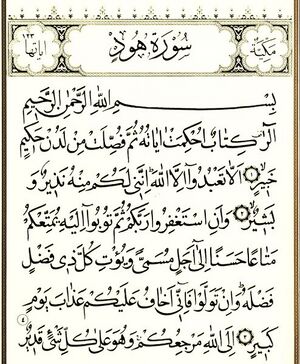 مكية
سورة هود
اياتها ١٢٣
بسم الله الرحمن الرحيم
الر كتاب احكمت اياته ثم فصلت من لدن حكيم
خبير ۝ الا تعبدوا الا الله انني لكم منه نذير و
بشير ۝ وان استغفروا ربكم ثم توبوا اليه يمتعكم
متاعا حسنا الى اجل مسمى ويؤت كل ذي فضل
فضله وان تولوا فاني اخاف عليكم عذاب يوم
كبير ۝ الى الله مرجعكم وهو على كل شيء قدير